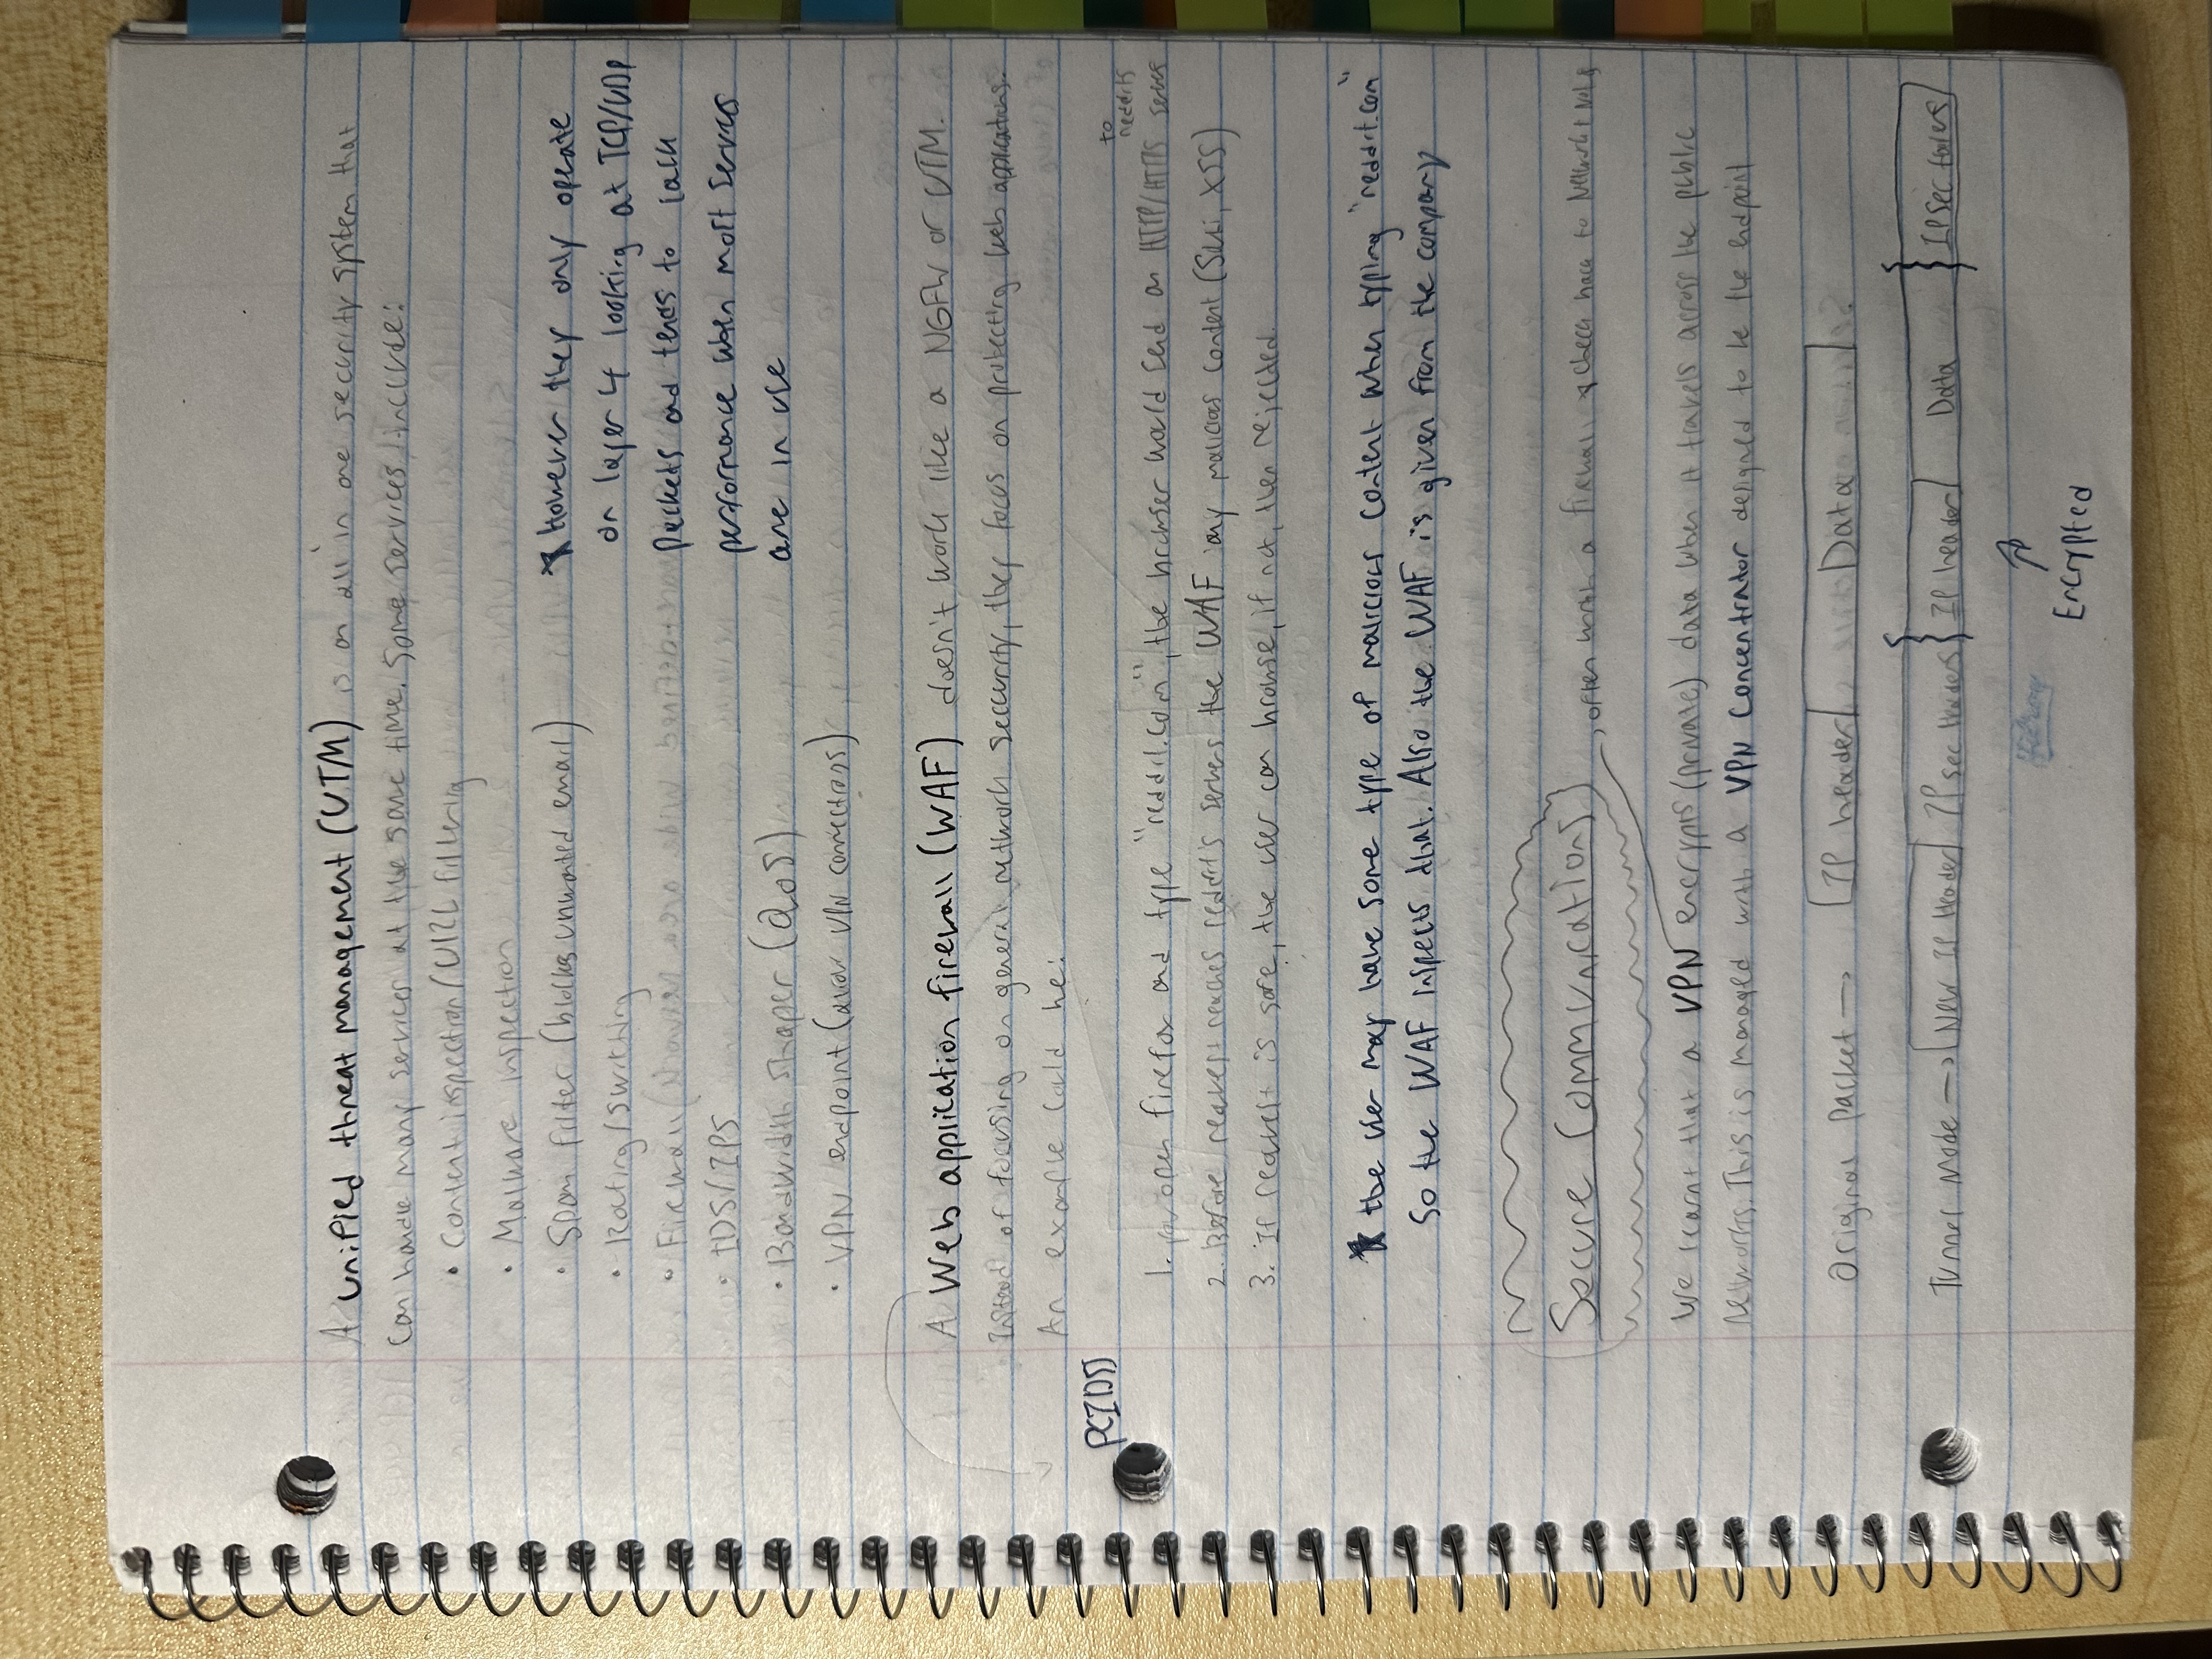 A unified threat management (UTM) is an all in one security system that
can handle many services at the same time. Some services include:
• Content inspection/URL filtering
• Malware inspection
• Spam filter (blocks unwanted email)
• Routing/Switching
• Firewall
• IDS/IPS
• Bandwidth shaper (QoS)
• VPN endpoint (allow VPN connections)
* However they only operate
on layer 4 looking at TCP/UDP
Packets and tends to lack
performance when most services
are in use
A Web application firewall (WAF) doesn't work like a NGFW or UTM.
Instead of focusing on general network seccurity, they focus on protecting web applications.
An example could be:
PCIDSS
1. you open firefox and type "reddit.com", the browser would send an HTTP/HTTPS to reddits server
2. Before request reaches reddit's servers the WAF any malicious content (SQLi, XSS)
3. If request is safe, the user can browse, if not, then rejected.
* the user may have some type of malicious content when typing "reddit.com"
So the WAF inspects that. Also the WAF is given from the company
Secure Communications
, often with a firewall * check back to Network+ Notes
We learnt that a VPN encrypts (private) data when it travels across the public
networks. This is managed with a VPN Concentrator designed to be the endpoint
Original Packet → IP header Data
Tunnel Mode → New IP Header IPsec Headers IP header Data IPSec
Encrypted